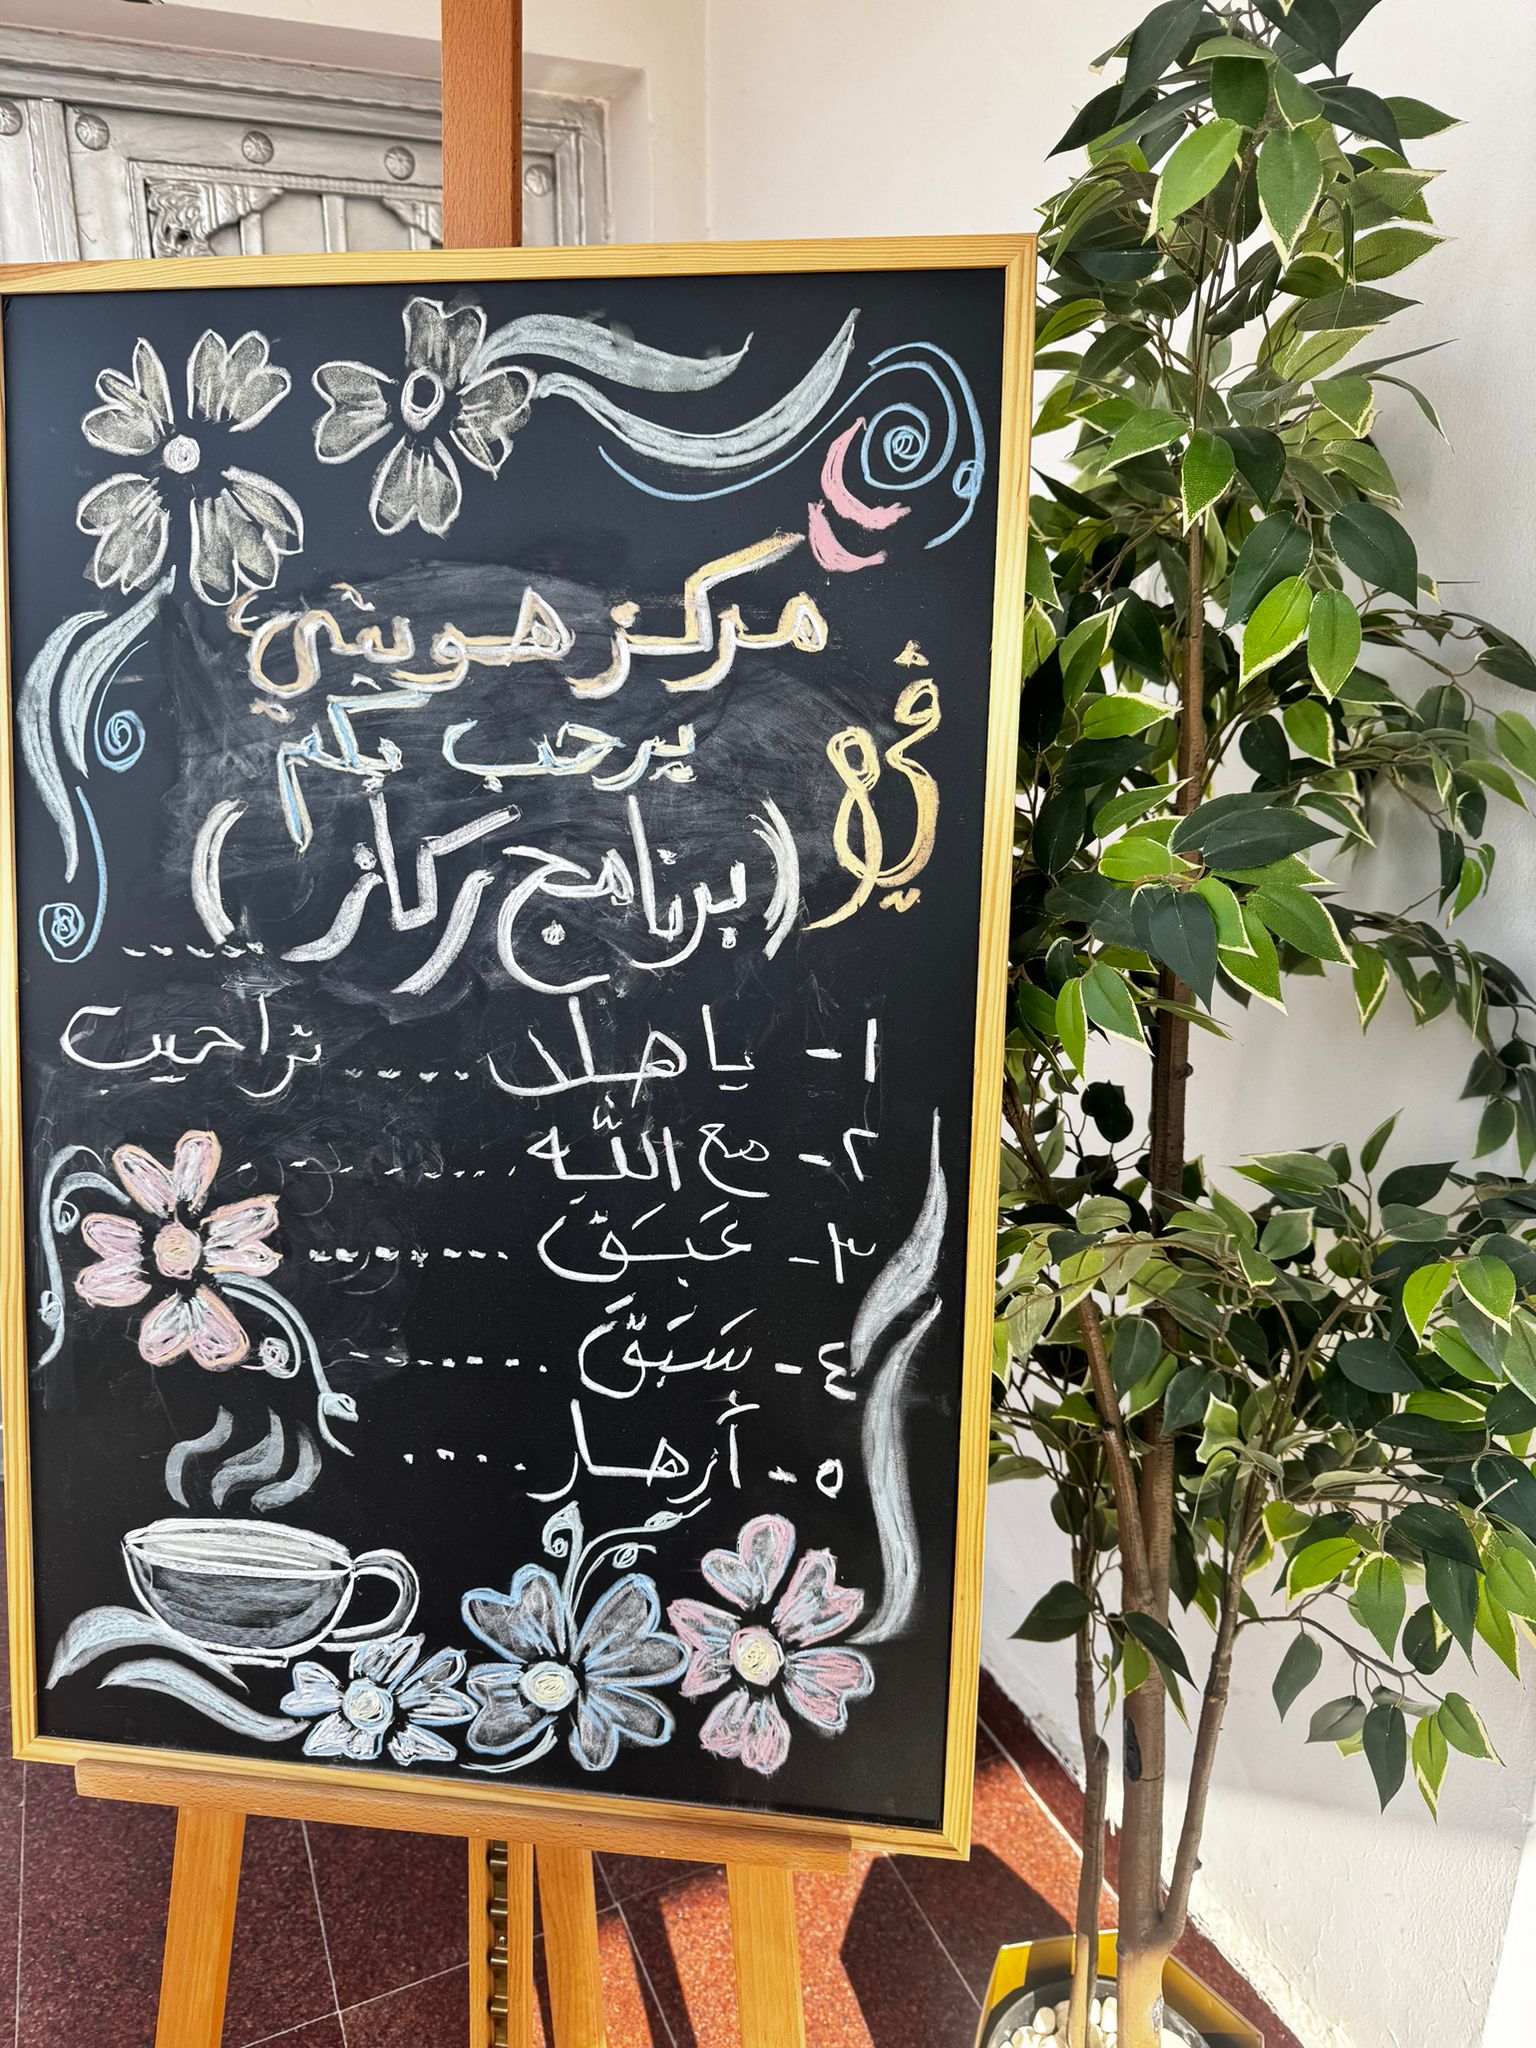 مركز هوشي
يرحب بكم
في
(برنامج ركاز) ....
١- ياهلا .... تراحيب
٢- مع اللّه ........
٣- عَبَق ........
٤- سَبَق ........
٥- أزهار ....